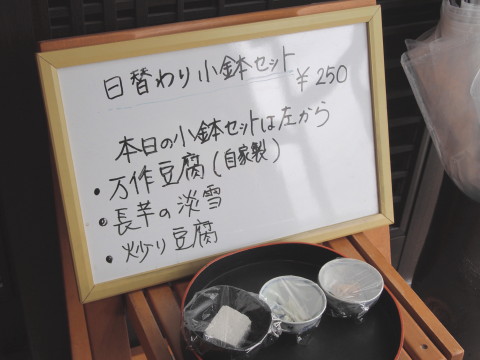 日替わり小鉢セット
¥250
本日の小鉢セットは左から
・万作豆腐(自家製)
・長芋の淡雪
・炒り豆腐